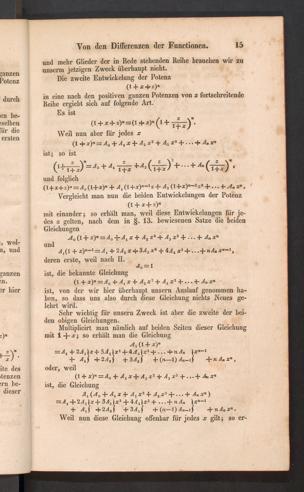 Von den Differenzen der Functionen. 15
und mehr Glieder der in Rede stehenden Reihe brauchen wir zu
unserm jetzigen Zweck überhaupt nicht.
Die zweite Entwickelung der Potenz
(1+x+z)ⁿ
in eine nach den positiven ganzen Potenzen von z fortschreitende
Reihe ergiebt sich auf folgende Art.
Es ist
(1+x+z)ⁿ=(1+x)ⁿ(1+z/(1+x))ⁿ.
Weil nun aber für jedes x
(1+x)ⁿ=A₀+A₁x+A₂x²+A₃x³+...+Aₙxⁿ
ist; so ist
(1+z/(1+x))ⁿ=A₀+A₁ z/(1+x)+A₂(z/(1+x))²+...+Aₙ(z/(1+x))ⁿ,
und folglich
(1+x+z)ⁿ=A₀(1+x)ⁿ+A₁(1+x)ⁿ⁻¹z+A₂(1+x)ⁿ⁻²z²+...+Aₙzⁿ.
Vergleicht man nun die beiden Entwickelungen der Potenz
(1+x+z)ⁿ
mit einander; so erhält man, weil diese Entwickelungen für je-
des z gelten, nach dem in §. 13. bewiesenen Satze die beiden
Gleichungen
A₀(1+x)ⁿ=A₀+A₁x+A₂x²+A₃x³+...+Aₙxⁿ
und
A₁(1+x)ⁿ⁻¹=A₁+2A₂x+3A₃x²+4A₄x³+...+nAₙxⁿ⁻¹,
deren erste, weil nach II.
A₀=1
ist, die bekannte Gleichung
(1+x)ⁿ=A₀+A₁x+A₂x²+A₃x³+...+Aₙxⁿ
ist, von der wir hier überhaupt unsern Auslauf genommen ha-
ben, so dass uns also durch diese Gleichung nichts Neues ge-
lehrt wird.
Sehr wichtig für unsern Zweck ist aber die zweite der bei-
den obigen Gleichungen.
Multiplicirt man nämlich auf beiden Seiten dieser Gleichung
mit 1+x; so erhält man die Gleichung
A₁(1+x)ⁿ
=A₁+2A₂}x+3A₃}x²+4A₄}x³+...+nAₙ}xⁿ⁻¹
+A₁}+2A₂}+3A₃}+(n−1)Aₙ₋₁}+nAₙxⁿ,
oder, weil
(1+x)ⁿ=A₀+A₁x+A₂x²+A₃x³+...+Aₙxⁿ
ist, die Gleichung
A₁(A₀+A₁x+A₂x²+A₃x³+...+Aₙxⁿ)
=A₁+2A₂}x+3A₃}x²+4A₄}x³+...+nAₙ}xⁿ⁻¹
+A₁}+2A₂}+3A₃}+(n−1)Aₙ₋₁}+nAₙxⁿ.
Weil nun diese Gleichung offenbar für jedes x gilt; so er-